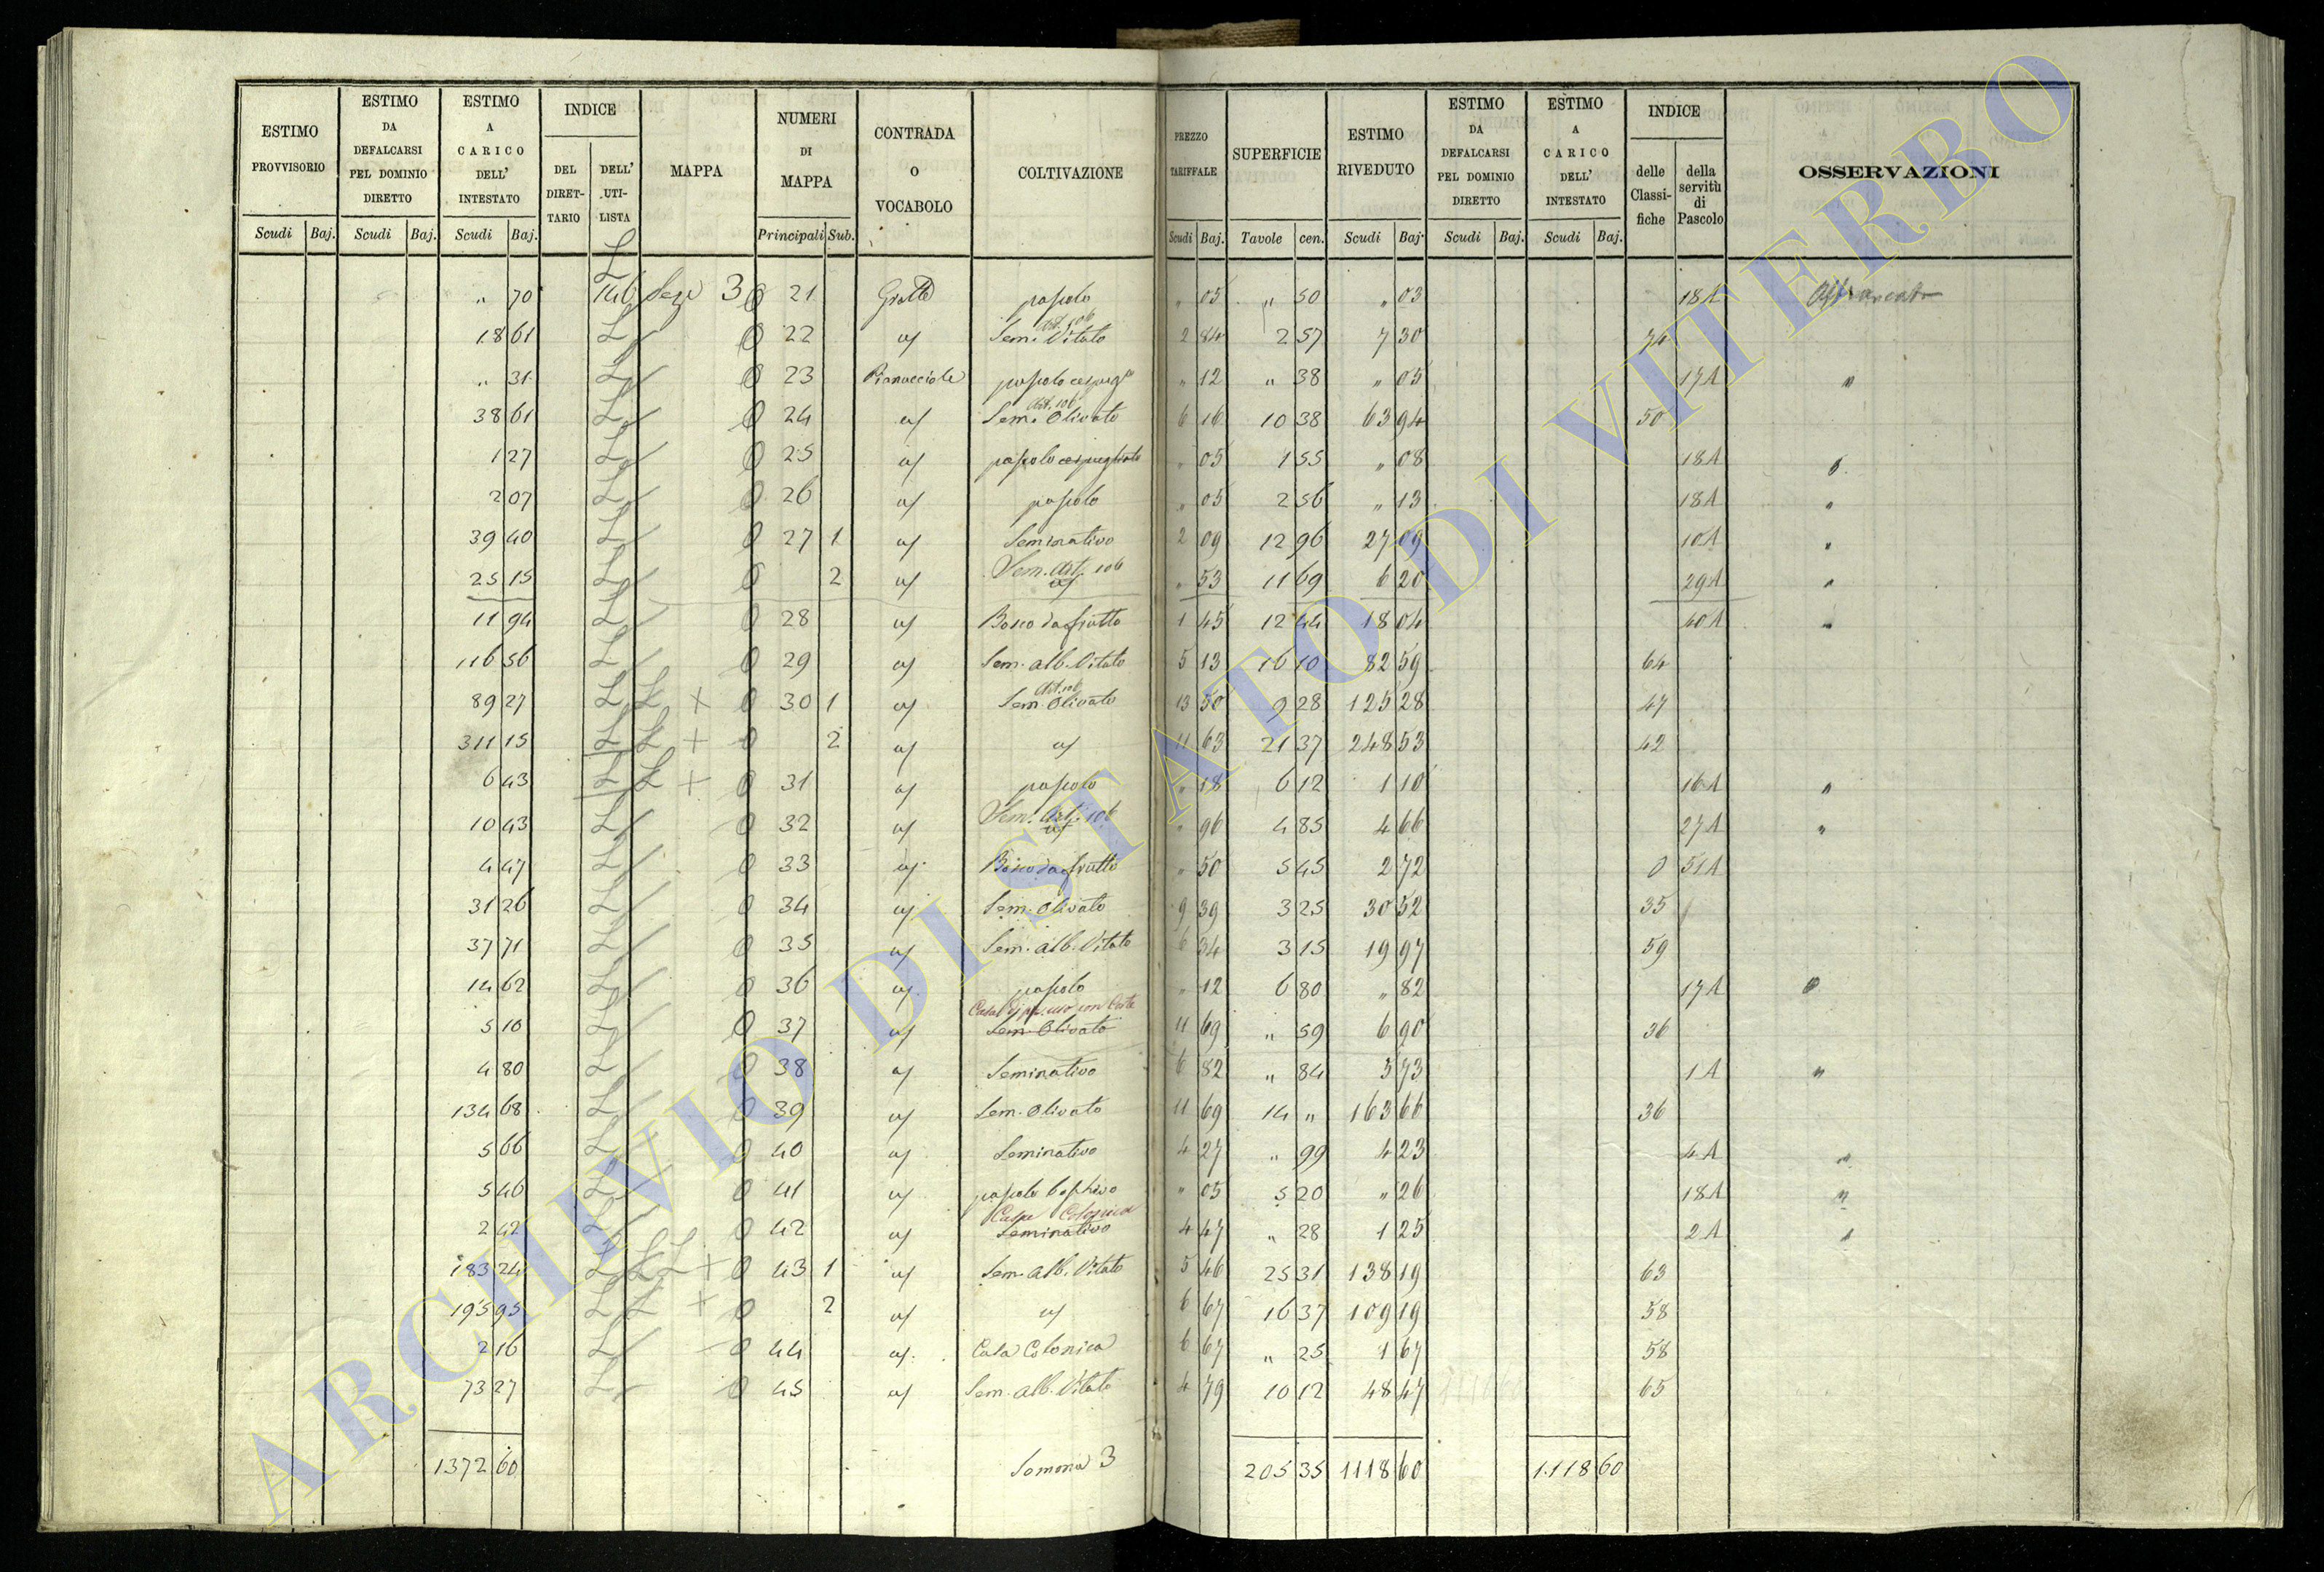 ESTIMO PROVVISORIO | ESTIMO DA DEFALCARSI PEL DOMINIO DIRETTO | ESTIMO A CARICO DELL' INTESTATO | INDICE DEL DIRET-TARIO | DELL' UTI-LISTA | MAPPA | NUMERI DI MAPPA | CONTRADA O VOCABOLO | COLTIVAZIONE | PREZZO TARIFFALE | SUPERFICIE | ESTIMO RIVEDUTO | ESTIMO DA DEFALCARSI PEL DOMINIO DIRETTO | ESTIMO A CARICO DELL' INTESTATO | INDICE delle Classi-fiche | della servitù di Pascolo | OSSERVAZIONI
Scudi Baj. Scudi Baj. Scudi Baj. Principali Sub. Scudi Baj. Tavole cen. Scudi Baj. Scudi Baj. Scudi Baj.
" 70 L 146 Sez 3 0 21 pascolo " 05 " 50 " 03 18 A
18 61 L 0 22 Art. 106 Sem. Vitato 2 84 2 57 7 30 74
" 31 L 0 23 " 12 " 38 " 05 17 A "
38 61 L 0 24 Art. 106 Sem. Olivato 6 16 10 38 63 94 50
1 27 L 0 25 pascolo cespugliato " 05 1 55 " 08 18 A
2 07 L 0 26 pascolo " 05 2 56 " 13 18 A "
39 40 L 0 27 1 Seminativo 2 09 12 96 27 09 10 A "
25 15 L 0 2 Sem. Art. 106 " 53 11 69 6 20 29 A "
11 94 L 0 28 Bosco da frutto 1 45 12 44 18 04 40 A "
116 56 L 0 29 Sem. alb. Vitato 5 13 16 10 82 59 64
89 27 L L + 0 30 1 Art. 106 Sem. Olivato 13 50 9 28 125 28 47
311 15 L L + 0 2 11 63 21 37 248 53 42
6 43 L L + 0 31 pascolo " 18 6 12 1 10 16 A "
10 43 L 0 32 Sem. Art. 106 " 96 4 85 4 66 27 A "
4 47 L 0 33 Bosco da frutto " 50 5 45 2 72 0 51 A
31 26 L 0 34 Sem. Olivato 9 39 3 25 30 52 35
37 71 L 0 35 Sem. alb. Vitato 6 34 3 15 19 97 59
14 62 L 0 36 pascolo " 12 6 80 " 82 17 A
5 10 L 0 37 Casa con Corte Sem. Olivato 11 69 " 59 6 90 36
4 80 L 0 38 Seminativo 6 82 " 84 5 73 1 A "
134 68 L 0 39 Sem. Olivato 11 69 14 " 163 66 36
5 66 L 0 40 Seminativo 4 27 " 99 4 23 4 A "
5 46 L 0 41 pascolo " 05 5 20 " 26 18 A "
2 42 L 0 42 Casa Colonica Seminativo 4 47 " 28 1 25 2 A
183 24 L L L + 0 43 1 Sem. alb. Vitato 5 46 25 31 138 19 63
195 95 L L + 0 2 6 67 16 37 109 19 58
2 16 L 0 44 Casa Colonica 6 67 " 25 1 67 58
73 27 L 0 45 Sem. alb. Vitato 4 79 10 12 48 47 65
1372 60 Somma 3 205 35 1118 60 1118 60
ARCHIVIO DI STATO DI VITERBO